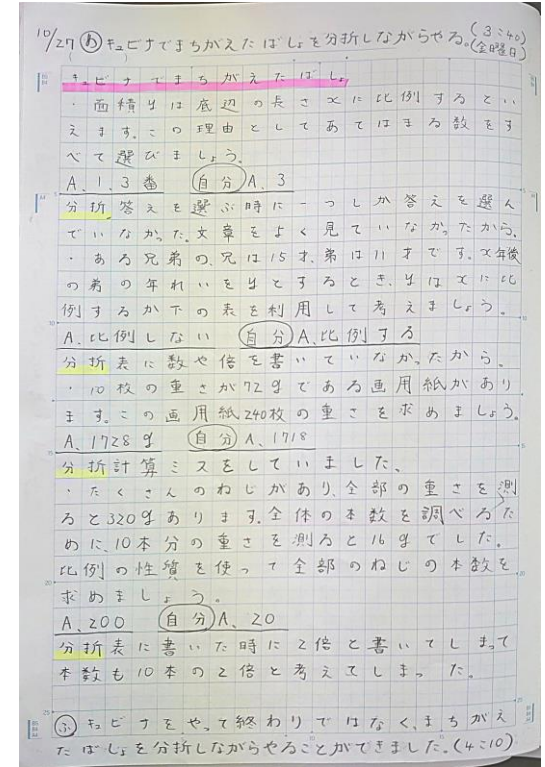 10/27 め キュビナでまちがえたばしょを分折しながらやる。(3:40)(金曜日)
キュビナでまちがえたばしょ
・面積yは底辺の長さxに比例するとい
えます。この理由としてあてはまる数をす
べて選びましょう。
A、1、3番 自分A、3
分折 答えを選ぶ時に一つしか答えを選ん
でいなかった。文章をよく見ていなかったから。
・ある兄弟の、兄は15才、弟は11才です。x年後
の弟の年れいをyとするとき、yはxに比
例するか下の表を利用して考えましょう。
A、比例しない 自分A、比例する
分折表に数や倍を書いていなかったから。
・10枚の重さが72gである画用紙があり
ます。この画用紙240枚の重さを求めましょう。
A、1728g 自分A、1718
分折計算ミスをしていました、
・たくさんのねじがあり、全部の重さを測
ると320gあります。全体の本数を調べるた
めに、10本分の重さを測ると16gでした。
比例の性質を使って全部のねじの本数を
求めましょう。
A、200 自分A、20
分折表に書いた時に2倍と書いてしまって
本数も10本の2倍と考えてしまった。
ふ キュビナをやって終わりではなく、まちがえ
たばしょを分折しながらやることができました。(4:10)